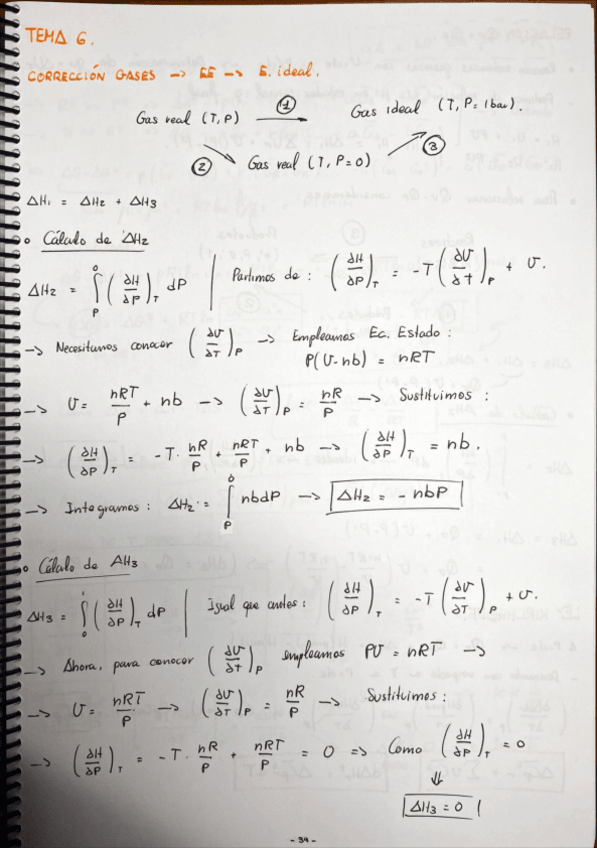 TEMA 6.
CORRECCIÓN GASES → EE → E. ideal.
Gas real (T, P) ① → Gas ideal (T, P = 1 bar).
② Gas real (T, P=0) ③
ΔH₁ = ΔH₂ + ΔH₃
o Cálculo de ΔH₂
ΔH₂ = ∫_P^0 (∂H/∂P)_T dP | Partimos de : (∂H/∂P)_T = -T (∂V/∂T)_P + V.
→ Necesitamos conocer (∂V/∂T)_P → Empleamos Ec. Estado :
P(V-nb) = nRT
→ V = nRT/P + nb → (∂V/∂T)_P = nR/P → Sustituimos :
→ (∂H/∂P)_T = -T · nR/P + nRT/P + nb → (∂H/∂P)_T = nb.
→ Integramos : ΔH₂ = ∫_P^0 nbdP → ΔH₂ = - nbP
o Cálculo de ΔH₃
ΔH₃ = ∫_0^1 (∂H/∂P)_T dP | Igual que antes : (∂H/∂P)_T = -T (∂V/∂T)_P + V.
→ Ahora, para conocer (∂V/∂T)_P empleamos PV = nRT →
→ V = nRT/P → (∂V/∂T)_P = nR/P → Sustituimos :
→ (∂H/∂P)_T = -T · nR/P + nRT/P = 0 ⇒ Como (∂H/∂P)_T = 0
⇓
ΔH₃ = 0
- 34 -